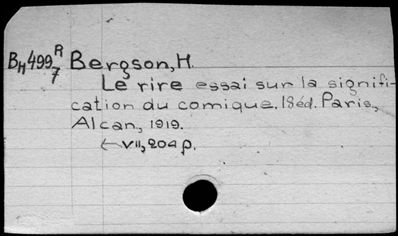 BH499 R 7 Bergson, H.
Le rire essai sur la signifi-
cation du comique. 18éd. Paris,
Alcan, 1919.
VII, 204 p.